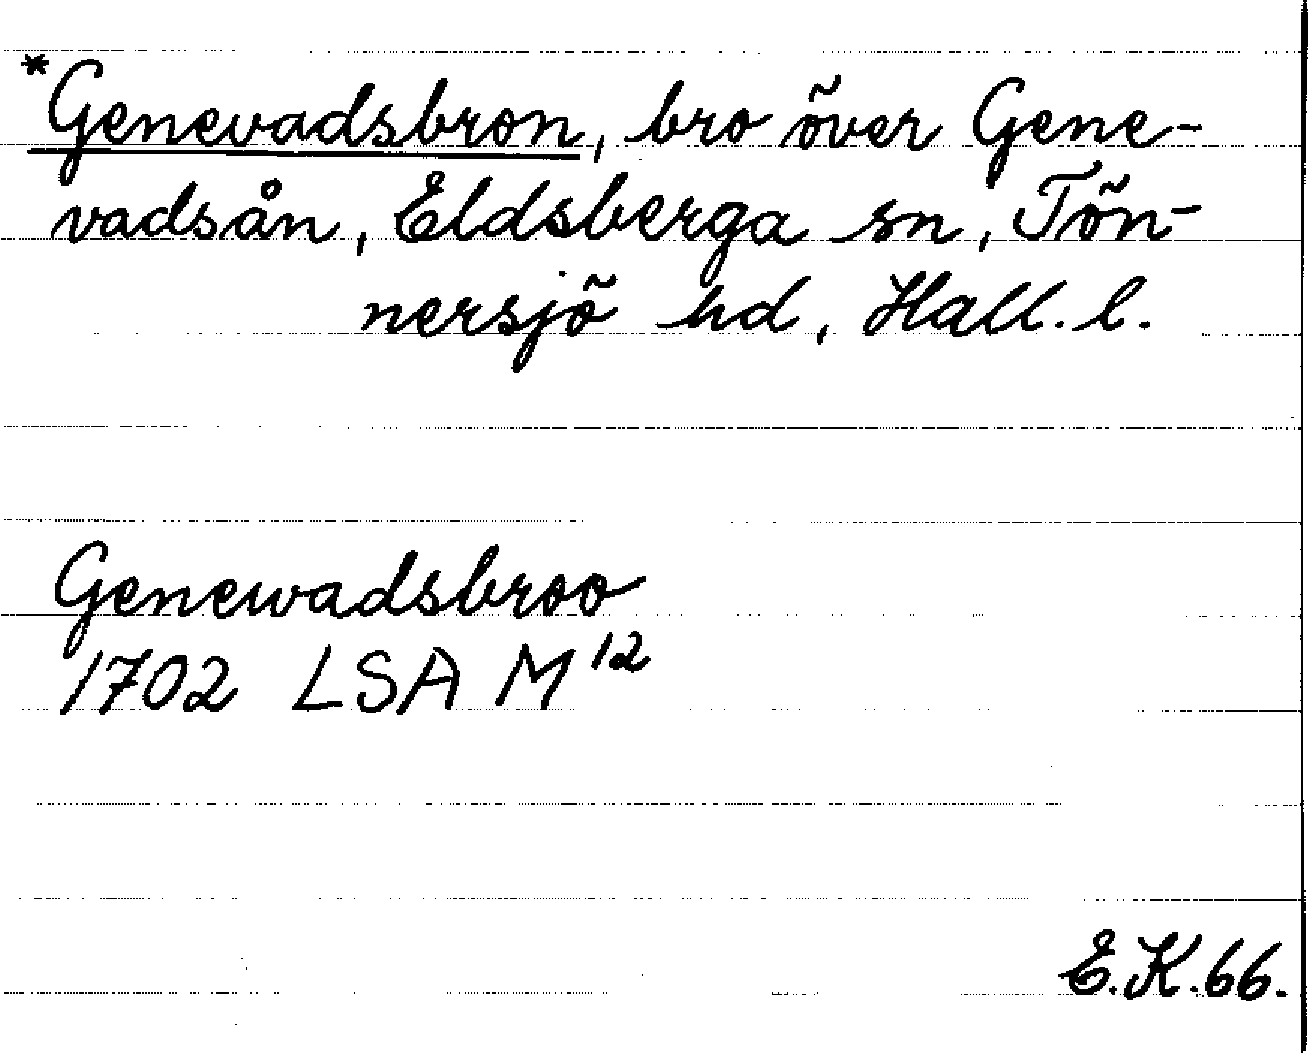 *Genevadsbron, bro över Gene-
vadsån, Eldsberga sn, Tön-
nersjö hd, Hall. l.
Genewadsbroo
1702 LSA M¹²
E.K.66.